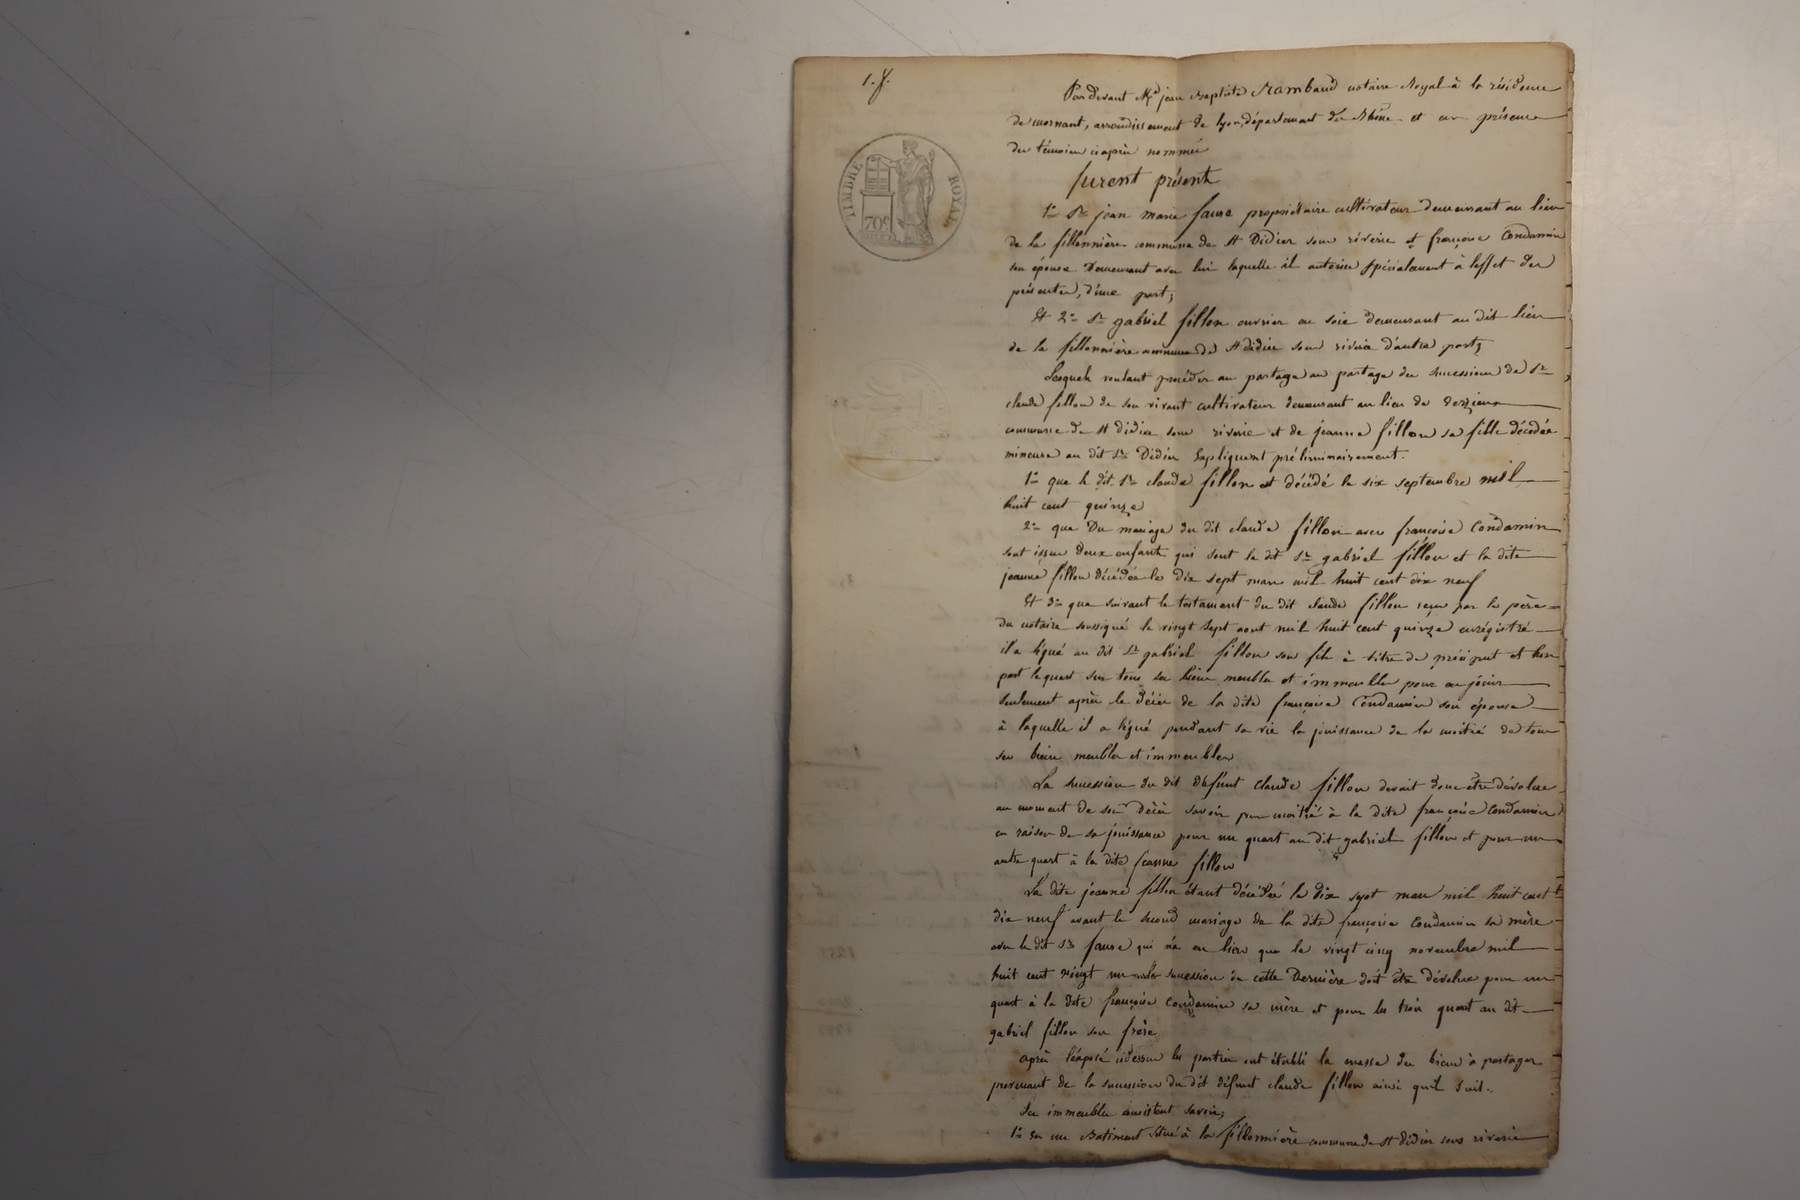 1. f.
TIMBRE ROYAL
70c
Pardevant Me jean Baptiste Rambaud notaire Royal à la résidence
de mornant, arrondissement de lyon, département du Rhône et en présence
des témoins ciaprès nommés
furent présent
1° Sr jean marie faure propriétaire cultivateur demeurant au lieu
de la fillonnière commune de St Didier sous riverie et françoise Condamin
son épouse Demeurant avec lui laquelle il autorise spécialement à leffet des
présentes, d'une part;
Et 2° Sr gabriel fillon ouvrier en soie demeurant au dit lieu
de la fillonnière commune de St didier sous riverie d'autre part;
Lesquels voulant procéder au partage au partage des successions de Sr
claude fillon de son vivant cultivateur demeurant au lieu de
commune de St Didier sous riverie et de jeanne fillon sa fille décédée
mineure au dit St Didier Expliquent préliminairement.
1° que le dit Sr claude fillon est décédé le six septembre mil
huit cent quinze
2° que Du mariage du dit claude fillon avec françoise Condamin
sont issus deux enfants qui sont le dit Sr gabriel fillon et la dite
jeanne fillon décédée le dix sept mars mil huit cent dix neuf
Et 3° que suivant le testament du dit claude fillon reçu par le père
du notaire soussigné le vingt sept aout mil huit cent quinze enrégistré
il a légué au dit Sr gabriel fillon son fils à titre de préciput et hors
part le quart sur tous ses biens meubles et immeubles pour en jouir
seulement après le décès de la dite françoise Condamin son épouse
à laquelle il a légué pendant sa vie la jouissance de la moitié de tous
ses biens meubles et immeubles
La succession du dit défunt claude fillon devait donc être dévolue
au moment de son décès savoir pour moitié à la dite françoise Condamin
en raison de sa jouissance pour un quart au dit gabriel fillon et pour un
autre quart à la dite jeanne fillon
La dite jeanne fillon étant décédée le dix sept mars mil huit cent
dix neuf avant le second mariage de la dite françoise Condamin sa mère
avec le dit Sr faure qui n'a eu lieu que le vingt cinq novembre mil
huit cent vingt un succession de cette Dernière doit être dévolue pour un
quart à la dite françoise Condamin sa mère et pour les trois quart au dit
gabriel fillon son frère
après l'éxposé cidessus les parties ont établi la masse des biens à partager
provenant de la succession du dit défunt claude fillon ainsi qu'il suit.
Les immeubles consistent savoir;
1° En un Batiment situé à la fillonnière commune de St didier sous riverie